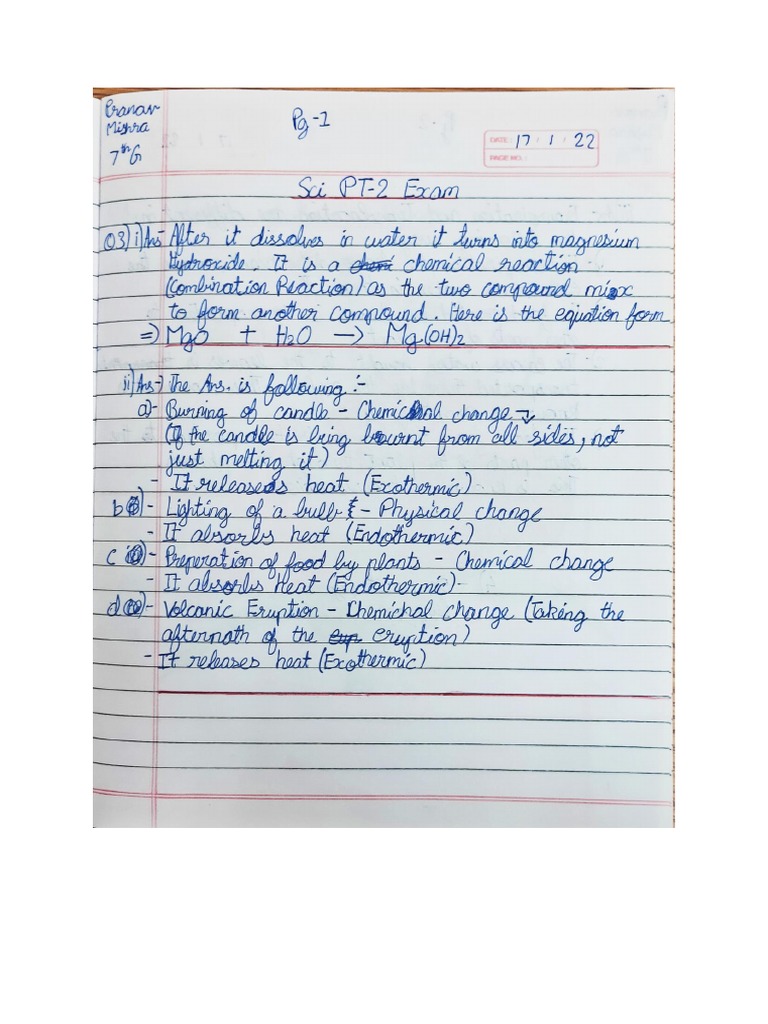 Pranav
Mishra
7th G
Pg-1
DATE: 17 / 1 / 22
PAGE NO.:
Sci PT-2 Exam
Q3) i) Ans- After it dissolves in water it turns into magnesium
Hydroxide. It is a chemical reaction
(Combination Reaction) as the two compound mix
to form another compound. Here is the equation form
=) MgO + H2O —> Mg(OH)2
ii) Ans-) The Ans. is following :-
a)- Burning of candle - Chemichal change
(If the candle is being burnt from all sides, not
just melting it)
- It releases heat (Exothermic)
b)- Lighting of a bulb - Physical change
- It absorbs heat (Endothermic)
c)- Preperation of food by plants - Chemical change
- It absorbs heat (Endothermic)-
d)- Volcanic Eruption - Chemichal change (Taking the
aftermath of the eruption)
- It releases heat (Exothermic)